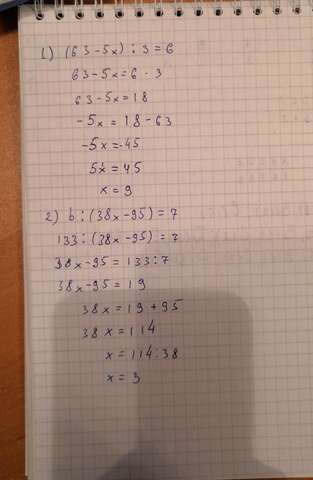 1) (63-5x) : 3 = 6
63-5x = 6 · 3
63-5x = 18
-5x = 18-63
-5x = -45
5x = 45
x = 9
2) b : (38x-95) = 7
133 : (38x-95) = 7
38x-95 = 133 : 7
38x-95 = 19
38x = 19 + 95
38x = 114
x = 114 : 38
x = 3